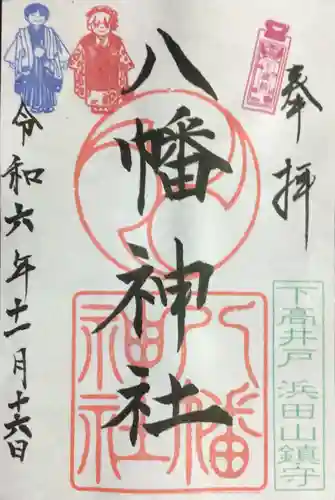 奉拝
八幡神社
八幡
神社
下高井戸 浜田山鎮守
令和六年十一月十六日